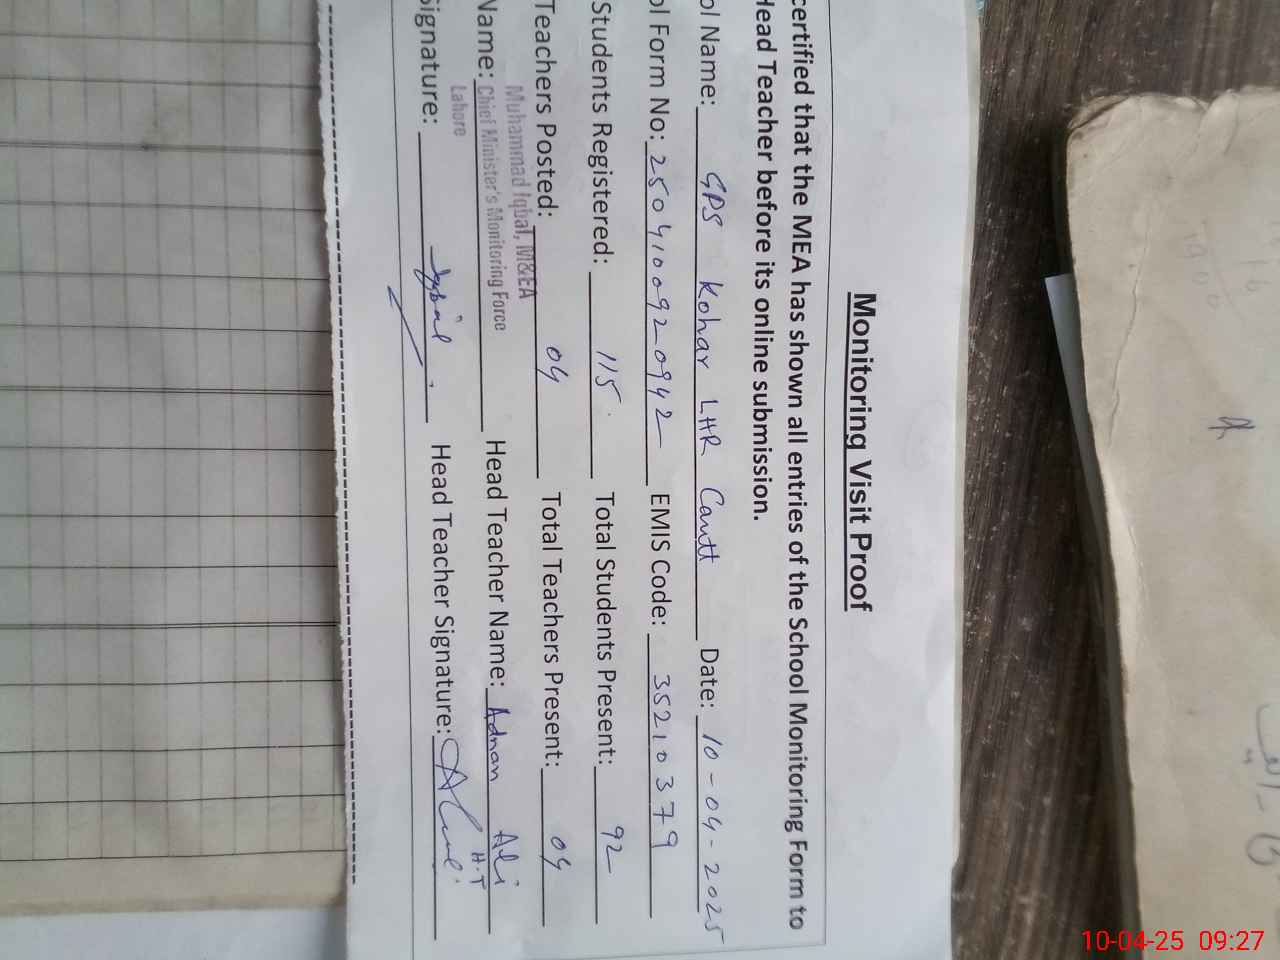 Monitoring Visit Proof
certified that the MEA has shown all entries of the School Monitoring Form to
Head Teacher before its online submission.
ol Name: GPS Kohar LHR Cantt Date: 10-04-2025
ol Form No: 2504100920942 EMIS Code: 35210379
Students Registered: 115 Total Students Present: 92
Teachers Posted: 04 Total Teachers Present: 04
Muhammad Iqbal, M&EA
Name: Chief Minister's Monitoring Force Head Teacher Name: Adnan Ali
H.T
Lahore
Signature: Iqbal Head Teacher Signature:
10-04-25 09:27